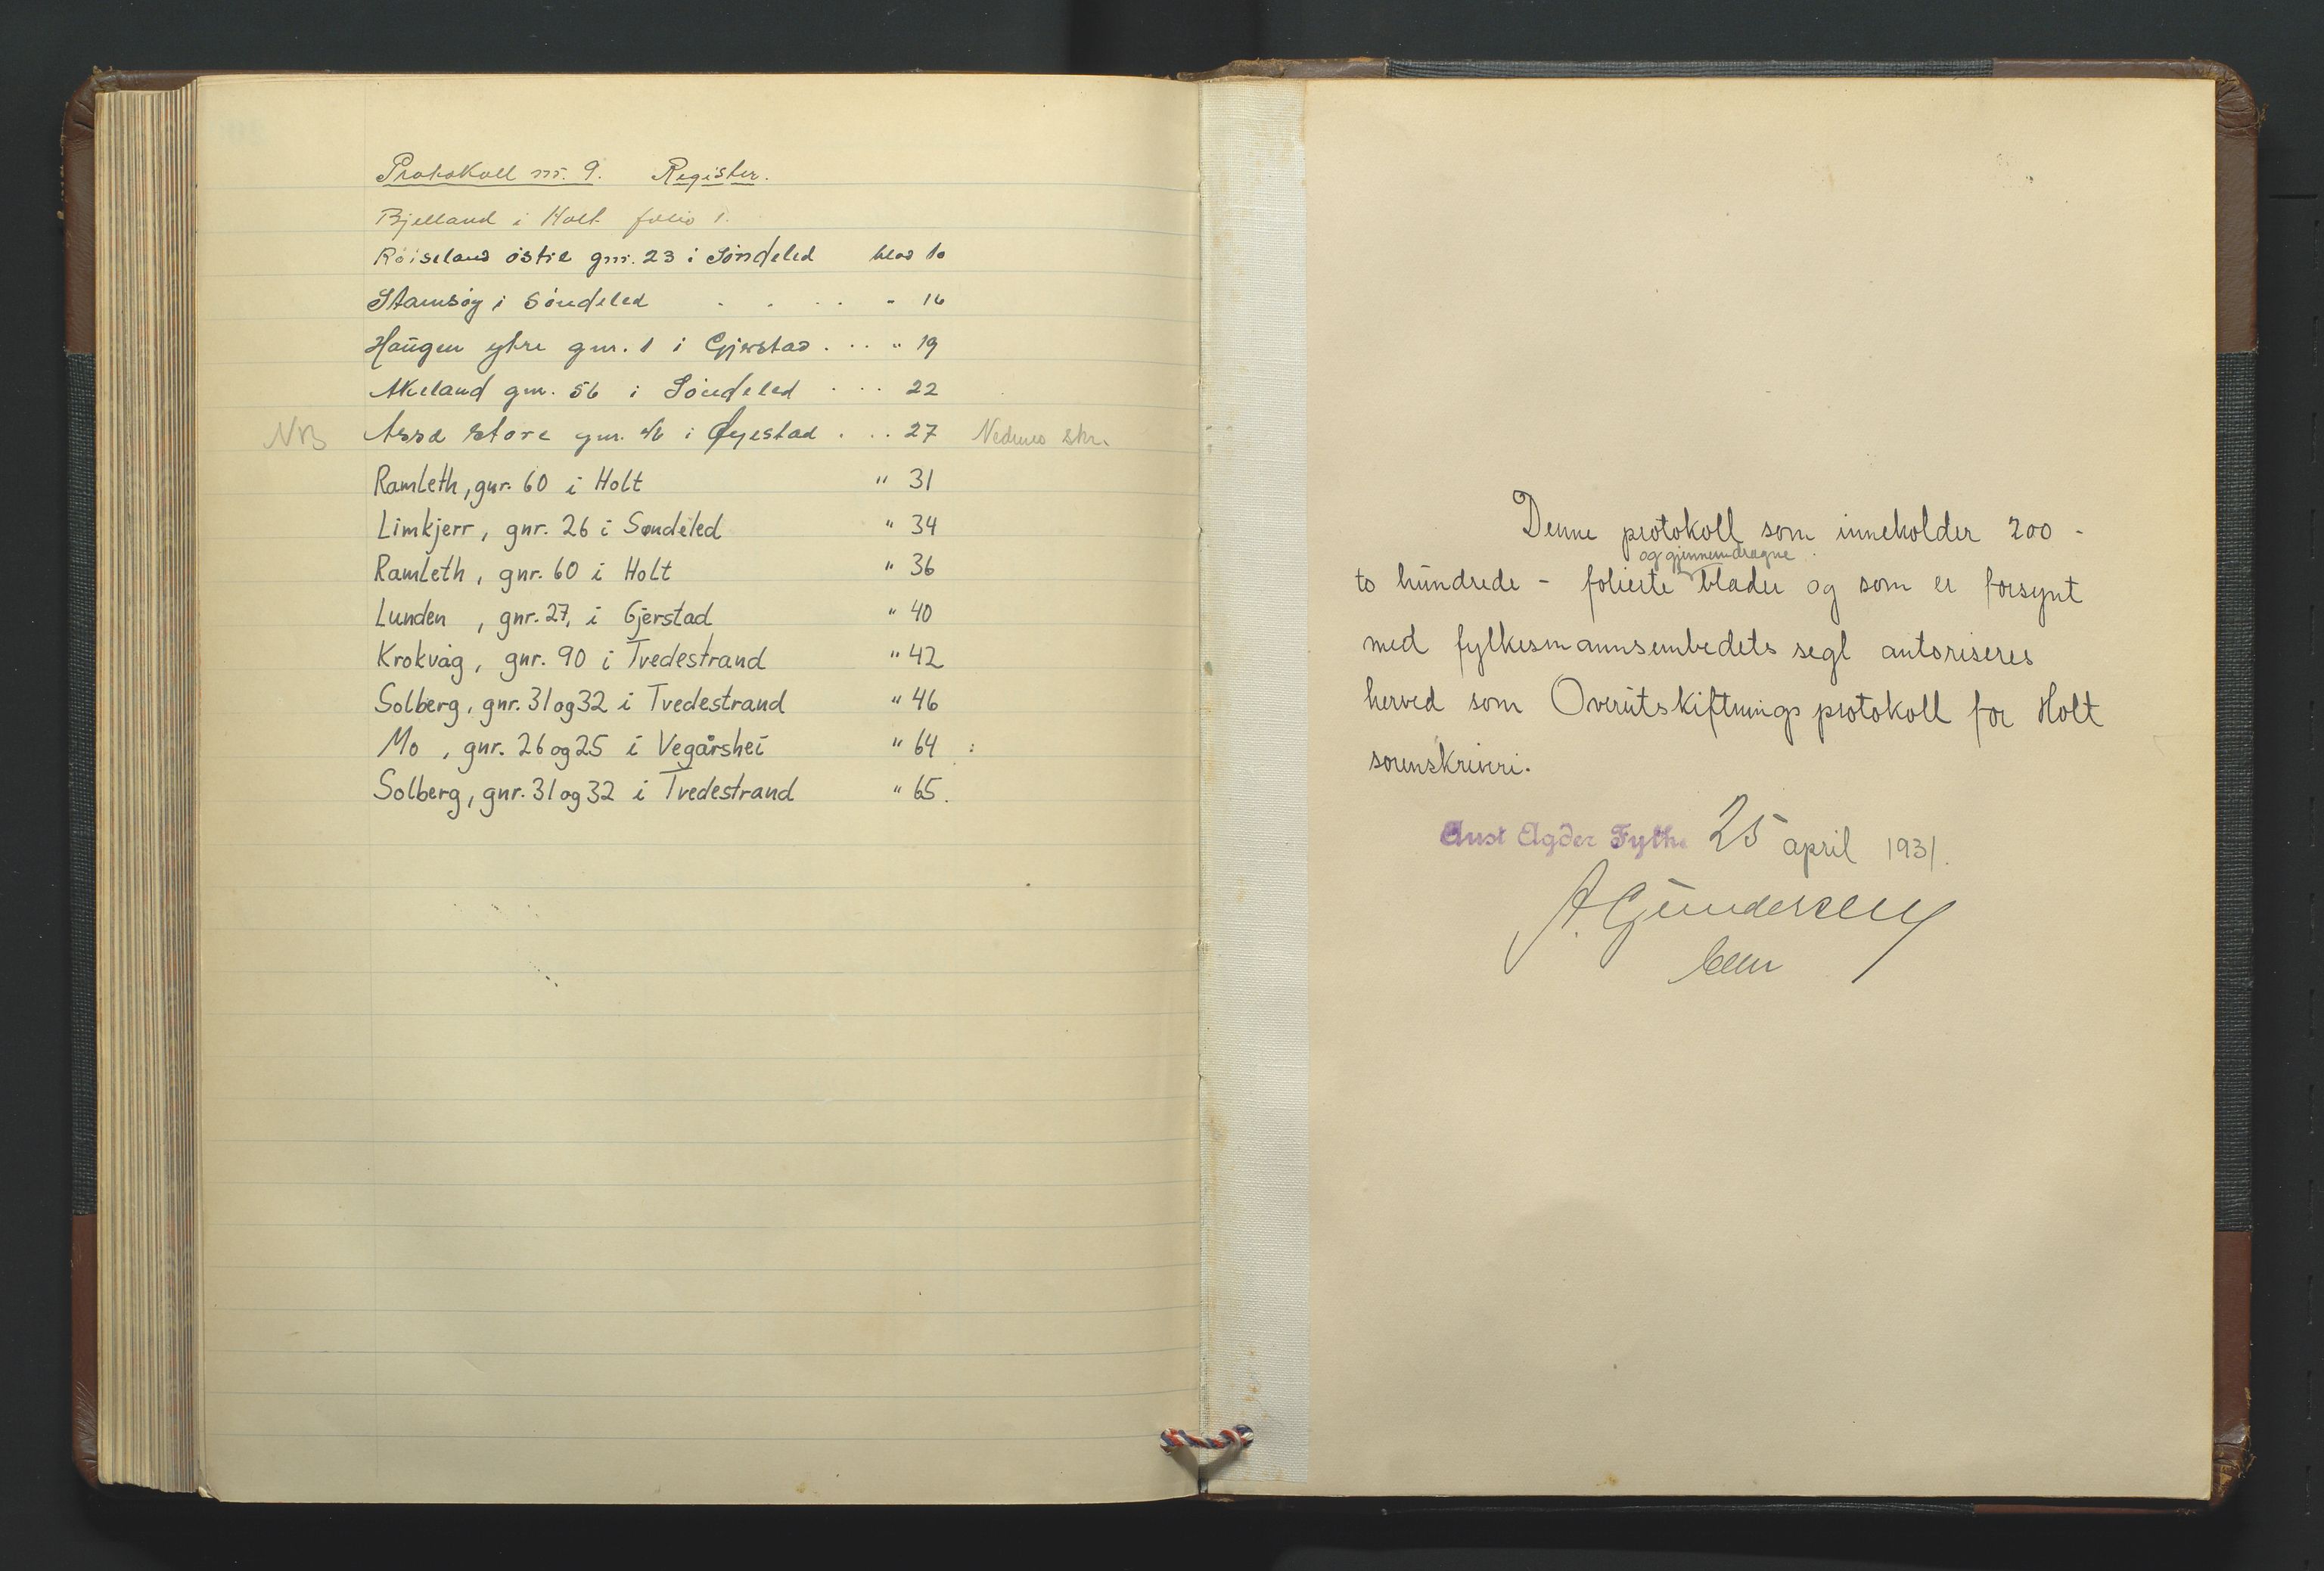 Protokoll nr. 9. Register.
Bjelland i Holt folio 1.
Röiseland östre gnr. 23 i Söndeled blad 10
Stamsöy i Söndeled . . . . " 16
Haugen ytre gnr. 1 i Gjerstad . . . " 19
Akeland gnr. 56 i Söndeled . . . 22
NB Assa store gnr. i Øyestad . . . 27 Nedenes skr.
Ramleth, gnr. 60 i Holt " 31
Limkjerr, gnr. 26 i Søndeled " 34
Ramleth, gnr. 60 i Holt " 36
Lunden , gnr. 27, i Gjerstad " 40
Krokvåg, gnr. 90 i Tvedestrand " 42
Solberg, gnr. 31 og 32 i Tvedestrand " 46
Mo , gnr. 26 og 25 i Vegårshei " 64 :
Solberg, gnr. 31 og 32 i Tvedestrand " 65.
Denne protokoll som inneholder 200 -
og gjennemdragne
to hundrede - folierte blader og som er forsynt
med fylkesmannsembedets segl autoriseres
herved som Overutskiftningsprotokoll for Holt
sorenskriveri.
Aust Agder Fylke 25 april 1931.
A. Gundersen